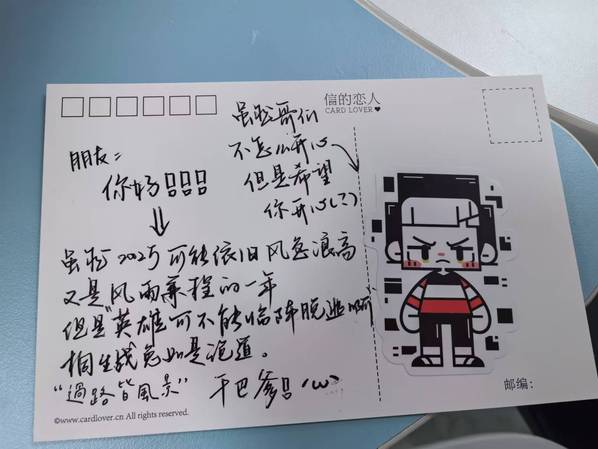 信的恋人
CARD LOVER
虽然哥们
不怎么开心
但是希望
你开心(?)
朋友:
你好!!!
虽然2025可能依旧风急浪高
又是风雨兼程的一年
但是"英雄可不能临阵脱逃啊"
相生战意如是说道。
"過路皆風景" 干巴爹! /ω\
邮编:
©www.cardlover.cn All rights reserved.